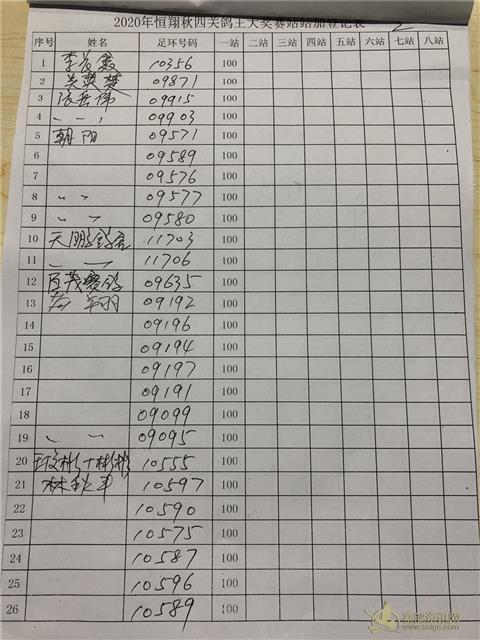 2020年恒翔秋四关鸽王大奖赛站站加登记表 2
序号 姓名 足环号码 一站 二站 三站 四站 五站 六站 七站 八站
1 10356 100
2 关英楚 09871 100
3 张岳伟 09915 100
4 09903 100
5 朝阳 09571 100
6 09589 100
7 09576 100
8 09577 100
9 09580 100
10 天鹏鸽舍 11703 100
11 11706 100
12 百茂赛鸽 09635 100
13 09192 100
14 09196 100
15 09194 100
16 09197 100
17 09191 100
18 09099 100
19 09095 100
20 10555 100
21 林秋平 10597 100
22 10590 100
23 10575 100
24 10587 100
25 10596 100
26 10589 100